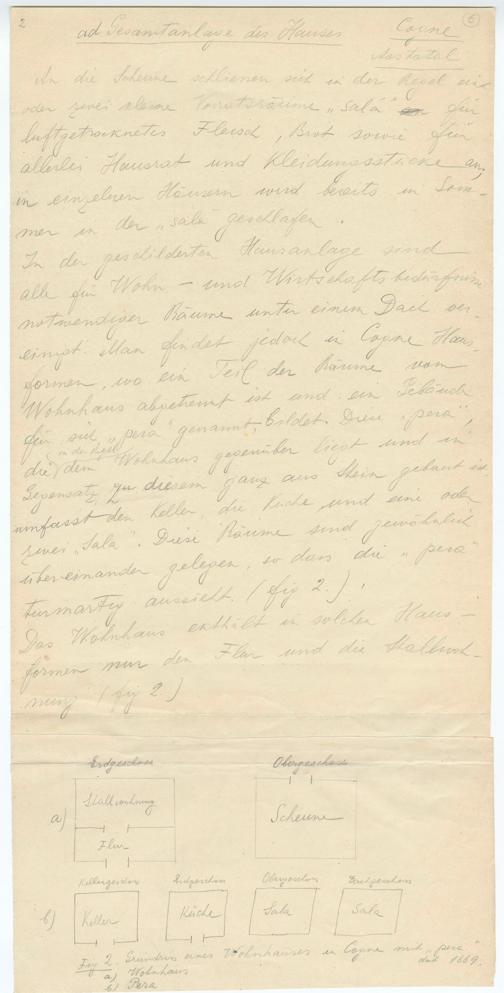 2
6
ad Gesamtanlage des Hauses Cogne
Aostatal
An die Scheune schliessen sich in der Regel eine
oder zwei kleine Vorratsräume „Sala“ für
luftgetrocknetes Fleisch, Brot sowie für
allerlei Hausrat und Kleidungsstücke an,
in einzelnen Häusern wird bereits im Som-
mer in der „sala“ geschlafen.
In der geschilderten Hausanlage sind
alle für Wohn- und Wirtschaftsbedürfnisse
notwendiger Räume unter einem Dach ver-
einigt. Man findet jedoch in Cogne Haus-
formen, wo ein Teil der Räume vom
Wohnhaus abgetrennt ist und ein Gebäude
für sich, „pera“ genannt, bildet. Diese „pera“,
die in der Regel dem Wohnhaus gegenüber liegt und im
Gegensatz zu diesem ganz aus Stein gebaut ist
umfasst den Keller, die Küche und eine oder
zwei „Sala“. Diese Räume sind gewöhnlich
übereinander gelegen, so dass die „pera“
turmartig aussieht. (fig 2.).
Das Wohnhaus enthält in solchen Haus-
formen nur den Flur und die Stallwoh-
nung (fig 2.)
Erdgeschoss Obergeschoss
a) Stallwohnung Scheune
Flur
Kellergeschoss Erdgeschoss Obergeschoss Dachgeschoss
b) Keller Küche Sala Sala
Fig 2. Grundriss eines Wohnhauses in Cogne mit „pera“
dat 1669.
a) Wohnhaus
b) Pera